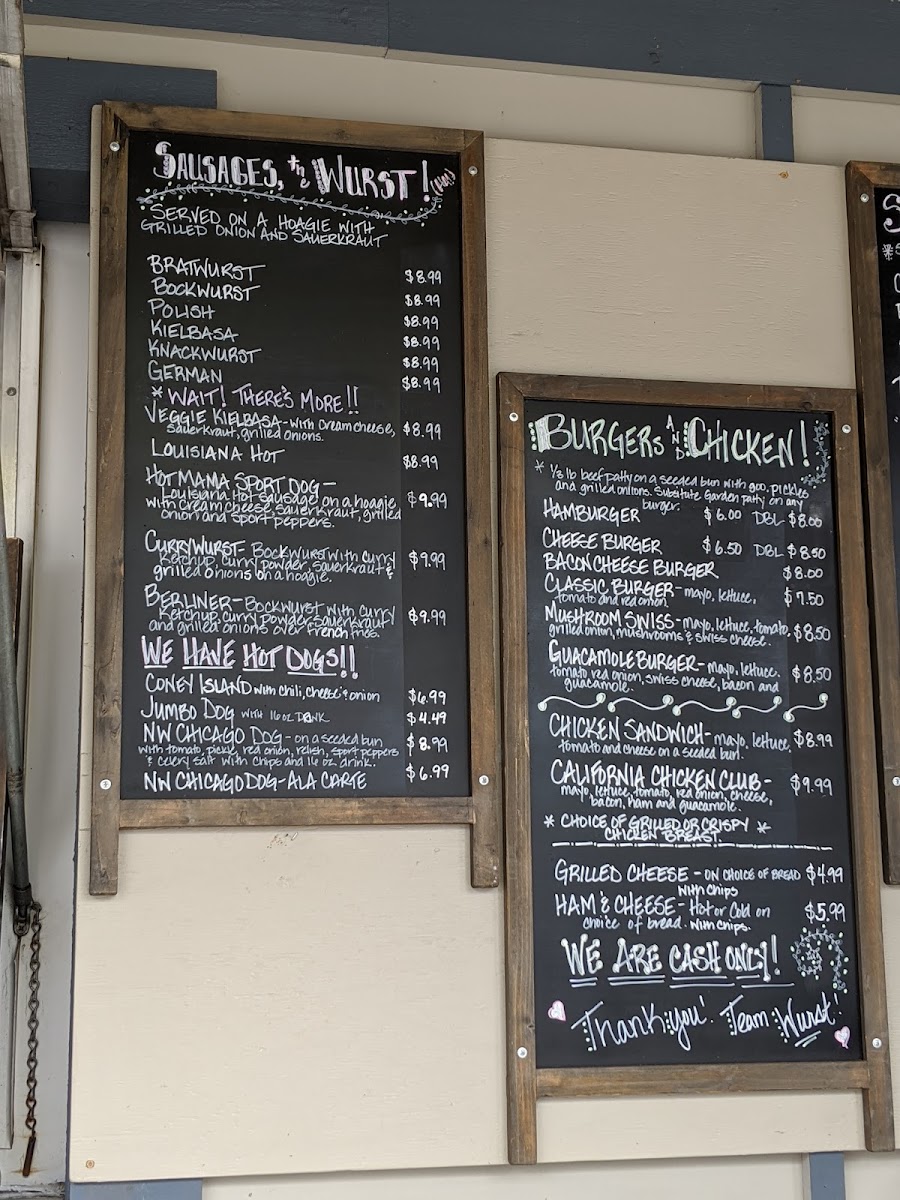 SAUSAGES, the WURST! (HA!)
SERVED ON A HOAGIE WITH
GRILLED ONION AND SAUERKRAUT
BRATWURST $8.99
BOCKWURST $8.99
POLISH $8.99
KIELBASA $8.99
KNACKWURST $8.99
GERMAN $8.99
* WAIT! THERE'S MORE!!
VEGGIE KIELBASA - with cream cheese, $8.99
sauerkraut, grilled onions.
LOUISIANA HOT $8.99
HOT MAMA SPORT DOG - 
Louisiana Hot sausage on a hoagie $9.99
with cream cheese, sauerkraut, grilled
onion and sport peppers.
CURRYWURST - Bockwurst with curry $9.99
ketchup, curry powder, sauerkraut &
grilled onions on a hoagie.
BERLINER - Bockwurst with curry $9.99
ketchup, curry powder, sauerkraut
and grilled onions over french fries.
WE HAVE HOT DOGS!!
CONEY ISLAND with chili, cheese & onion $6.99
JUMBO DOG WITH 16 OZ DRINK $4.49
NW CHICAGO DOG - on a seeded bun $8.99
with tomato, pickle, red onion, relish, sport peppers
& celery salt with chips and 16 oz. drink.
NW CHICAGO DOG - ALA CARTE $6.99
BURGERS AND CHICKEN!
* 1/3 lb beef patty on a seeded bun with goo, pickles
and grilled onions. Substitute Garden patty on any
burger.
HAMBURGER $6.00 DBL $8.00
CHEESE BURGER $6.50 DBL $8.50
BACON CHEESE BURGER $8.00
CLASSIC BURGER - mayo, lettuce, $7.50
tomato and red onion
MUSHROOM SWISS - mayo, lettuce, tomato, $8.50
grilled onion, mushrooms & swiss cheese.
GUACAMOLE BURGER - mayo, lettuce. $8.50
tomato red onion, swiss cheese, bacon and
guacamole.
CHICKEN SANDWICH - mayo, lettuce, $8.99
tomato and cheese on a seeded bun.
CALIFORNIA CHICKEN CLUB - $9.99
mayo, lettuce, tomato, red onion, cheese,
bacon, ham and guacamole.
* CHOICE OF GRILLED OR CRISPY *
CHICKEN BREAST
GRILLED CHEESE - ON CHOICE OF BREAD $4.99
with chips
HAM & CHEESE - Hot or Cold on $5.99
choice of bread. with chips.
WE ARE CASH ONLY!
Thank you! Team Wurst!